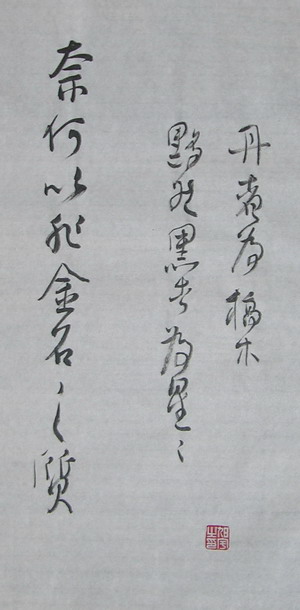 丹者為槁木
黟然黑者為星〻
奈何以非金石之質